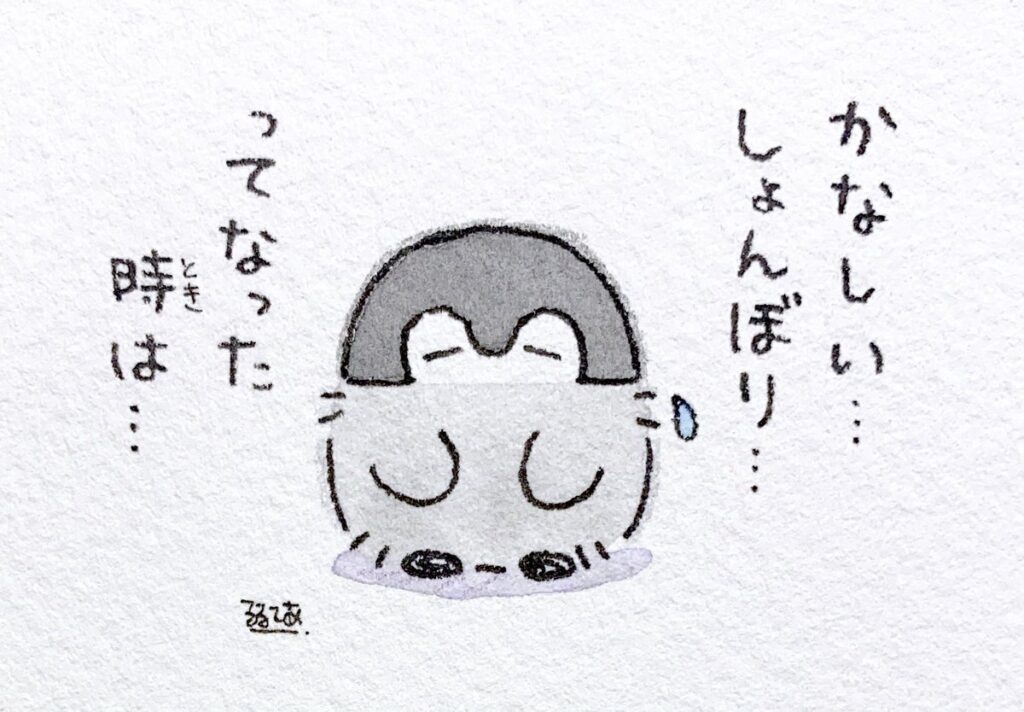 かなしい…
しょんぼり…
ってなった
時は…
とき
るるてあ.